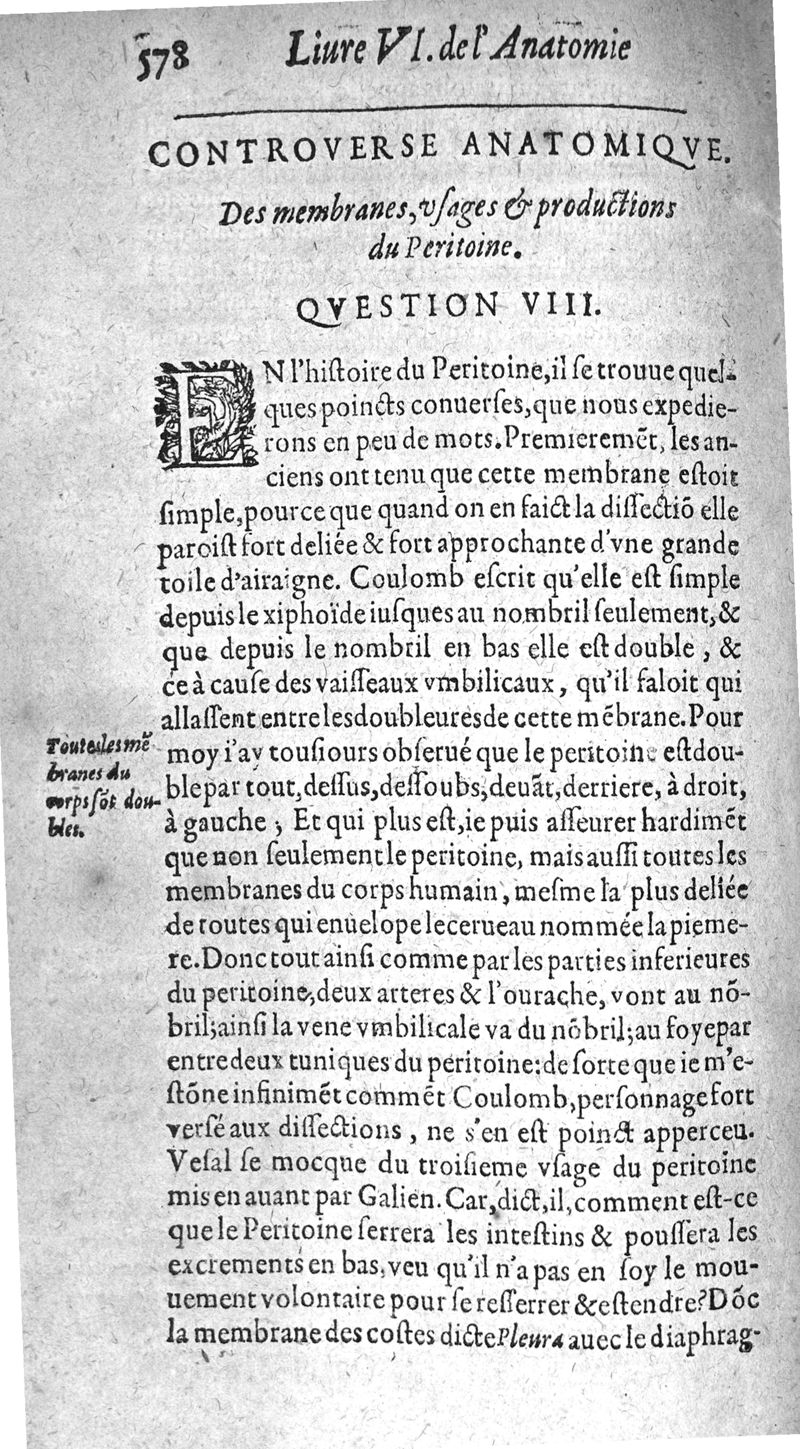 578 Liure VI. de l'Anatomie
CONTROVERSE ANATOMIQVE.
Des membranes, vſages & productions
du Peritoine.
QVESTION VIII.
EN l'hiſtoire du Peritoine, il ſe trouue quel-
ques poincts conuerſes, que nous expedie-
rons en peu de mots. Premieremẽt, les an-
ciens ont tenu que cette membrane eſtoit
ſimple, pource que quand on en faict la diſſectiõ elle
paroiſt fort deliée & fort approchante d'vne grande
toile d'airaigne. Coulomb eſcrit qu'elle eſt ſimple
depuis le xiphoïde iuſques au nombril ſeulement, &
que depuis le nombril en bas elle eſt double, &
ce à cauſe des vaiſſeaux vmbilicaux, qu'il faloit qui
allaſſent entre les doubleures de cette mẽbrane. Pour
Toutes les mẽ-
branes du
corps sõt dou-
bles.
moy i'ay touſiours obſerué que le peritoine eſt dou-
ble par tout, deſſus, deſſoubs, deuãt, derriere, à droit,
à gauche; Et qui plus eſt, ie puis aſſeurer hardimẽt
que non ſeulement le peritoine, mais auſſi toutes les
membranes du corps humain, meſme la plus deliée
de toutes qui enuelope le cerueau nommée la pieme-
re. Donc tout ainſi comme par les parties inferieures
du peritoine, deux arteres & l'ourache, vont au nõ-
bril; ainſi la vene vmbilicale va du nõbril; au foye par
entre deux tuniques du peritoine: de ſorte que ie m'e-
ſtõne infinimẽt commẽt Coulomb, perſonnage fort
verſé aux diſſections, ne s'en eſt poinct apperceu.
Veſal ſe mocque du troiſieme vſage du peritoine
mis en auant par Galien. Car, dict, il, comment eſt-ce
que le Peritoine ſerrera les inteſtins & pouſſera les
excrements en bas, veu qu'il n'a pas en ſoy le mou-
uement volontaire pour ſe reſſerrer & eſtendre? Dõc
la membrane des coſtes dicte Pleura auec le diaphrag-